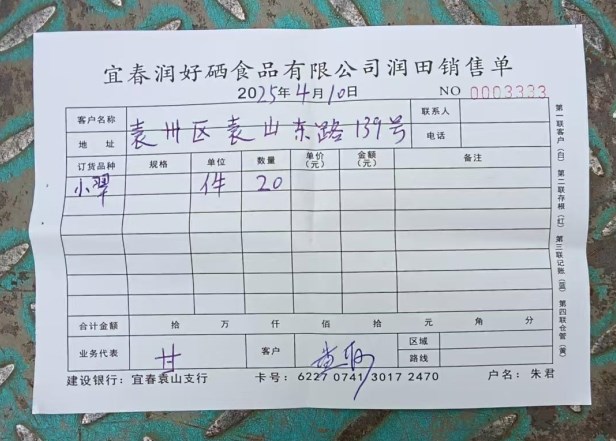 宜春润好硒食品有限公司润田销售单
2025年4月10日 NO 0003333
客户名称 联系人
地址 袁州区袁山东路139号 电话
订货品种 规格 单位 数量 单价(元) 金额(元) 备注
小翠 件 20
合计金额 拾 万 仟 佰 拾 元 角 分
业务代表 甘 客户 区域
路线
建设银行：宜春袁山支行 卡号：6227 0741 3017 2470 户名：朱君
第一联客户(白) 第二联存根(红) 第三联记账(蓝) 第四联仓管(黄)